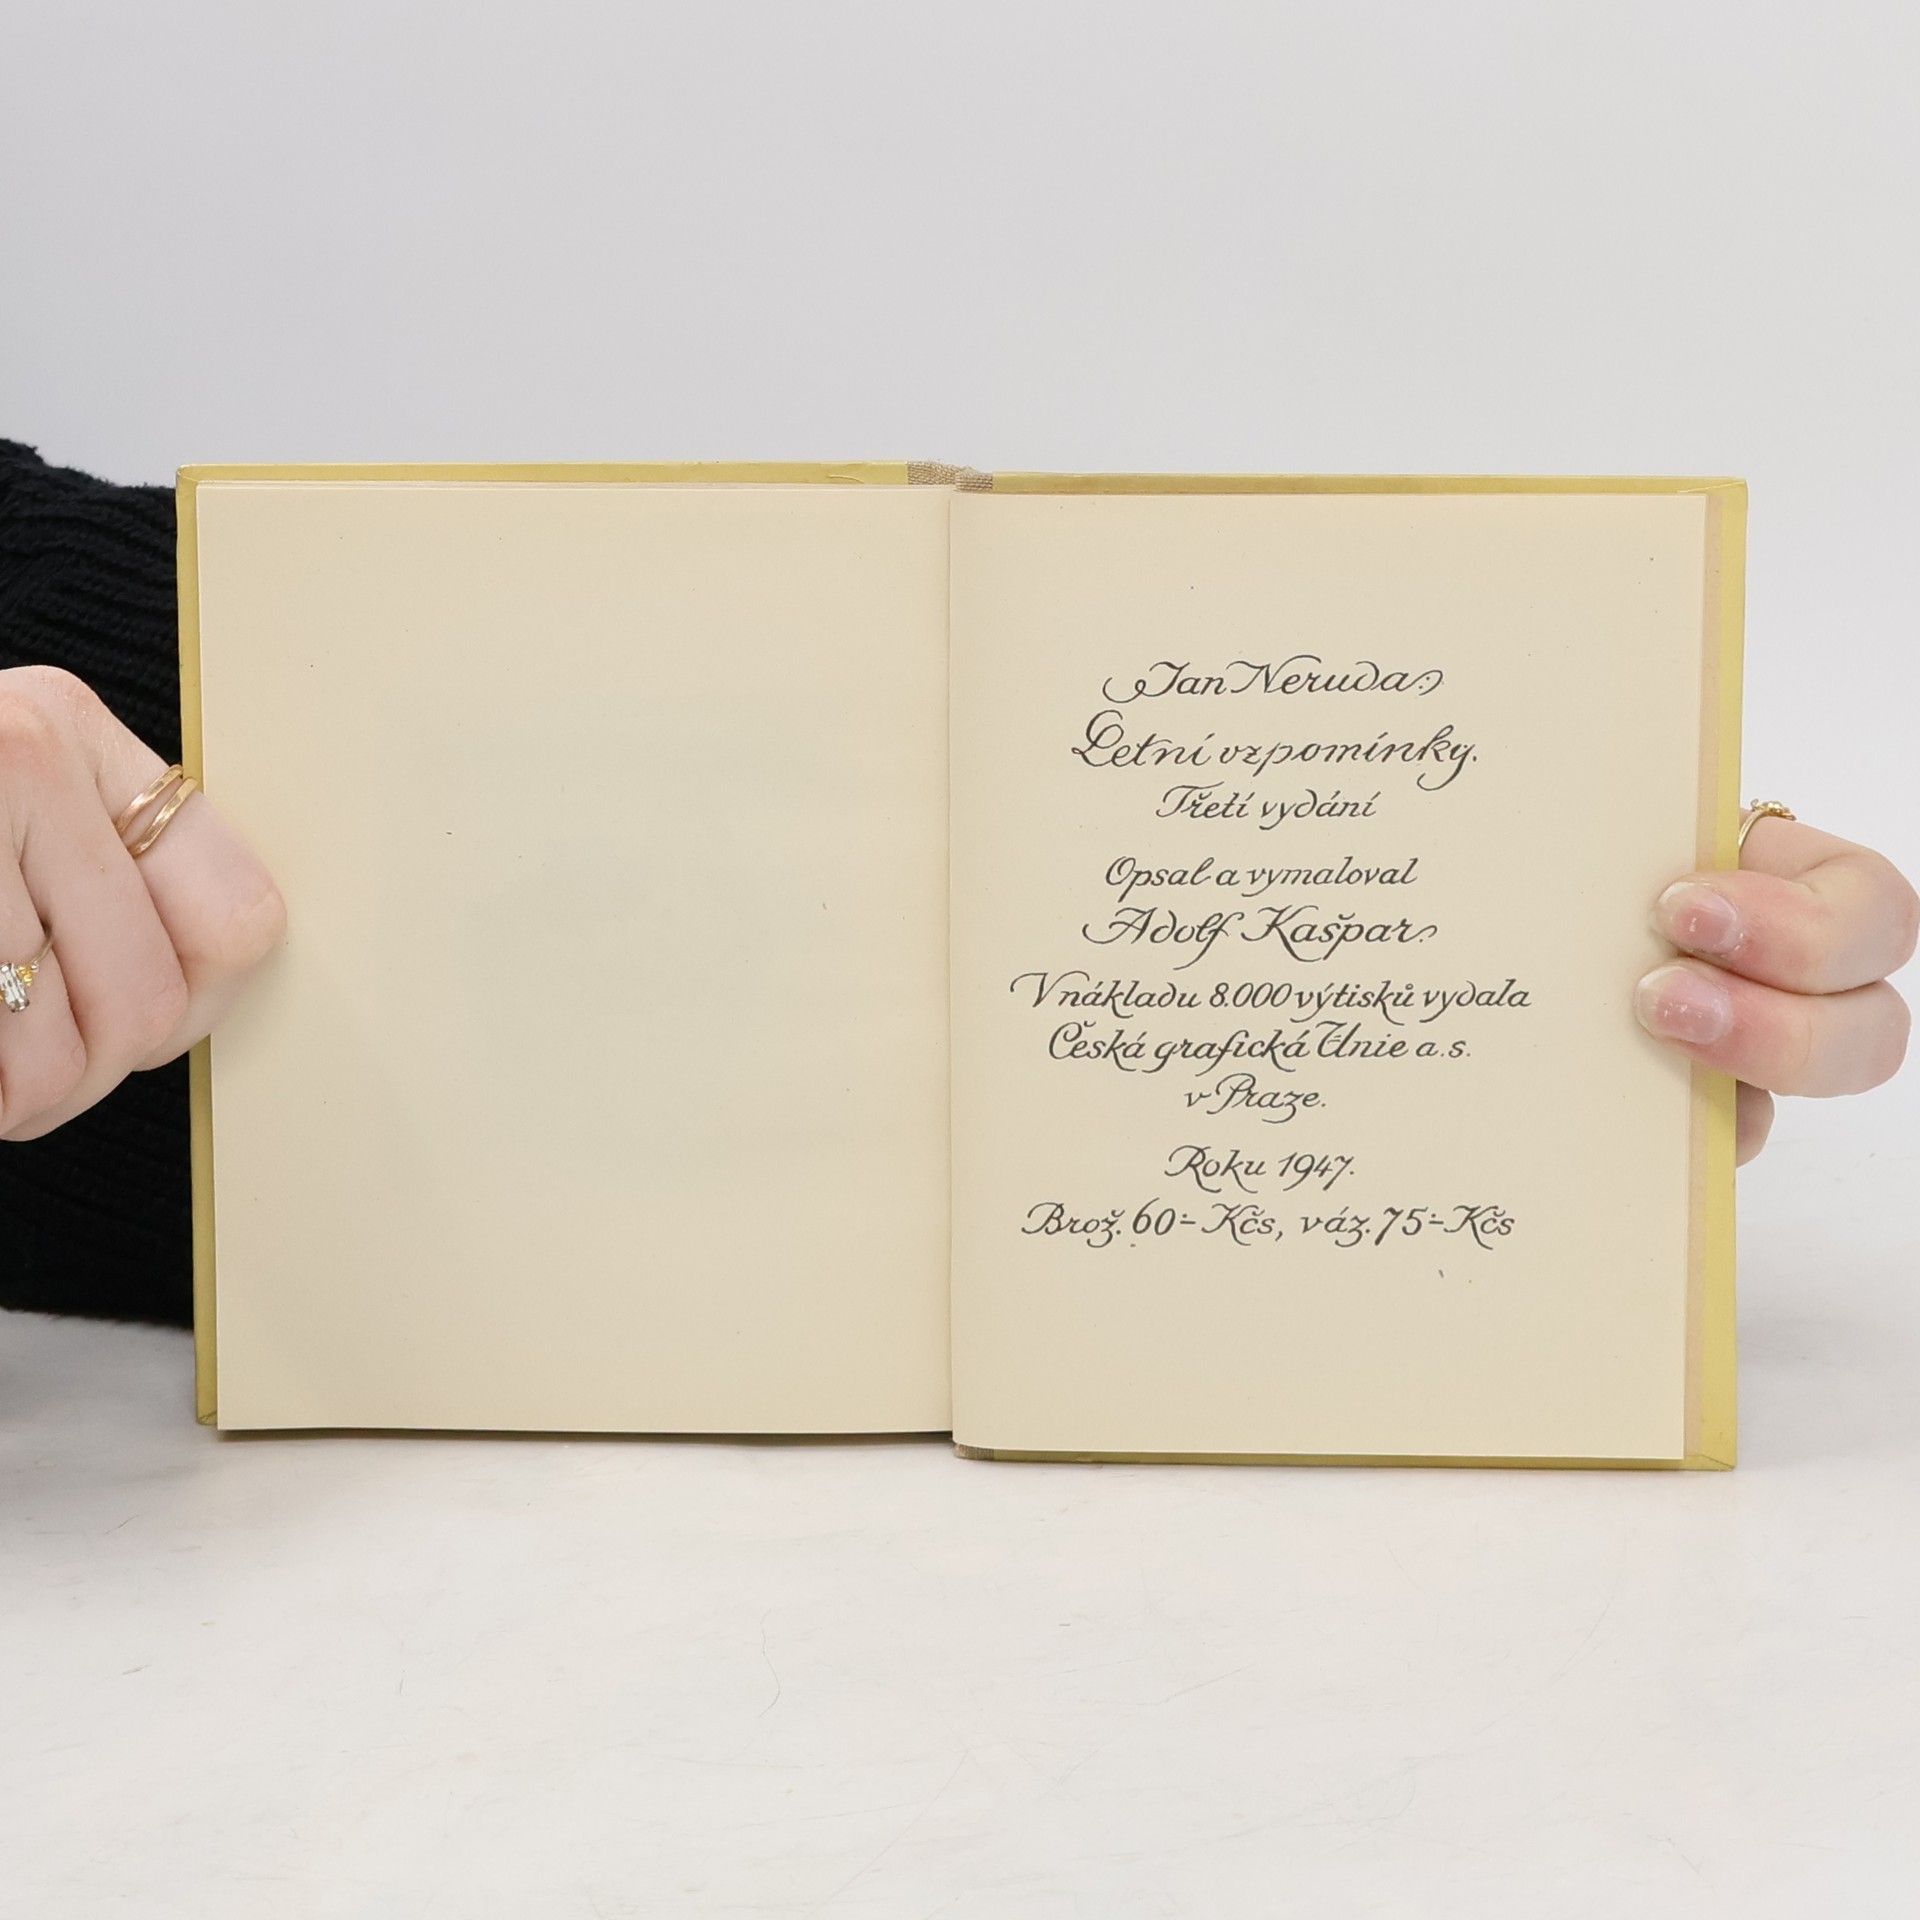 Jan Neruda:
Letní vzpomínky.
Třetí vydání
Opsal a vymaloval
Adolf Kašpar.
V nákladu 8.000 výtisků vydala
Česká grafická Unie a.s.
v Praze.
Roku 1947.
Brož. 60÷ Kčs, váz. 75÷ Kčs